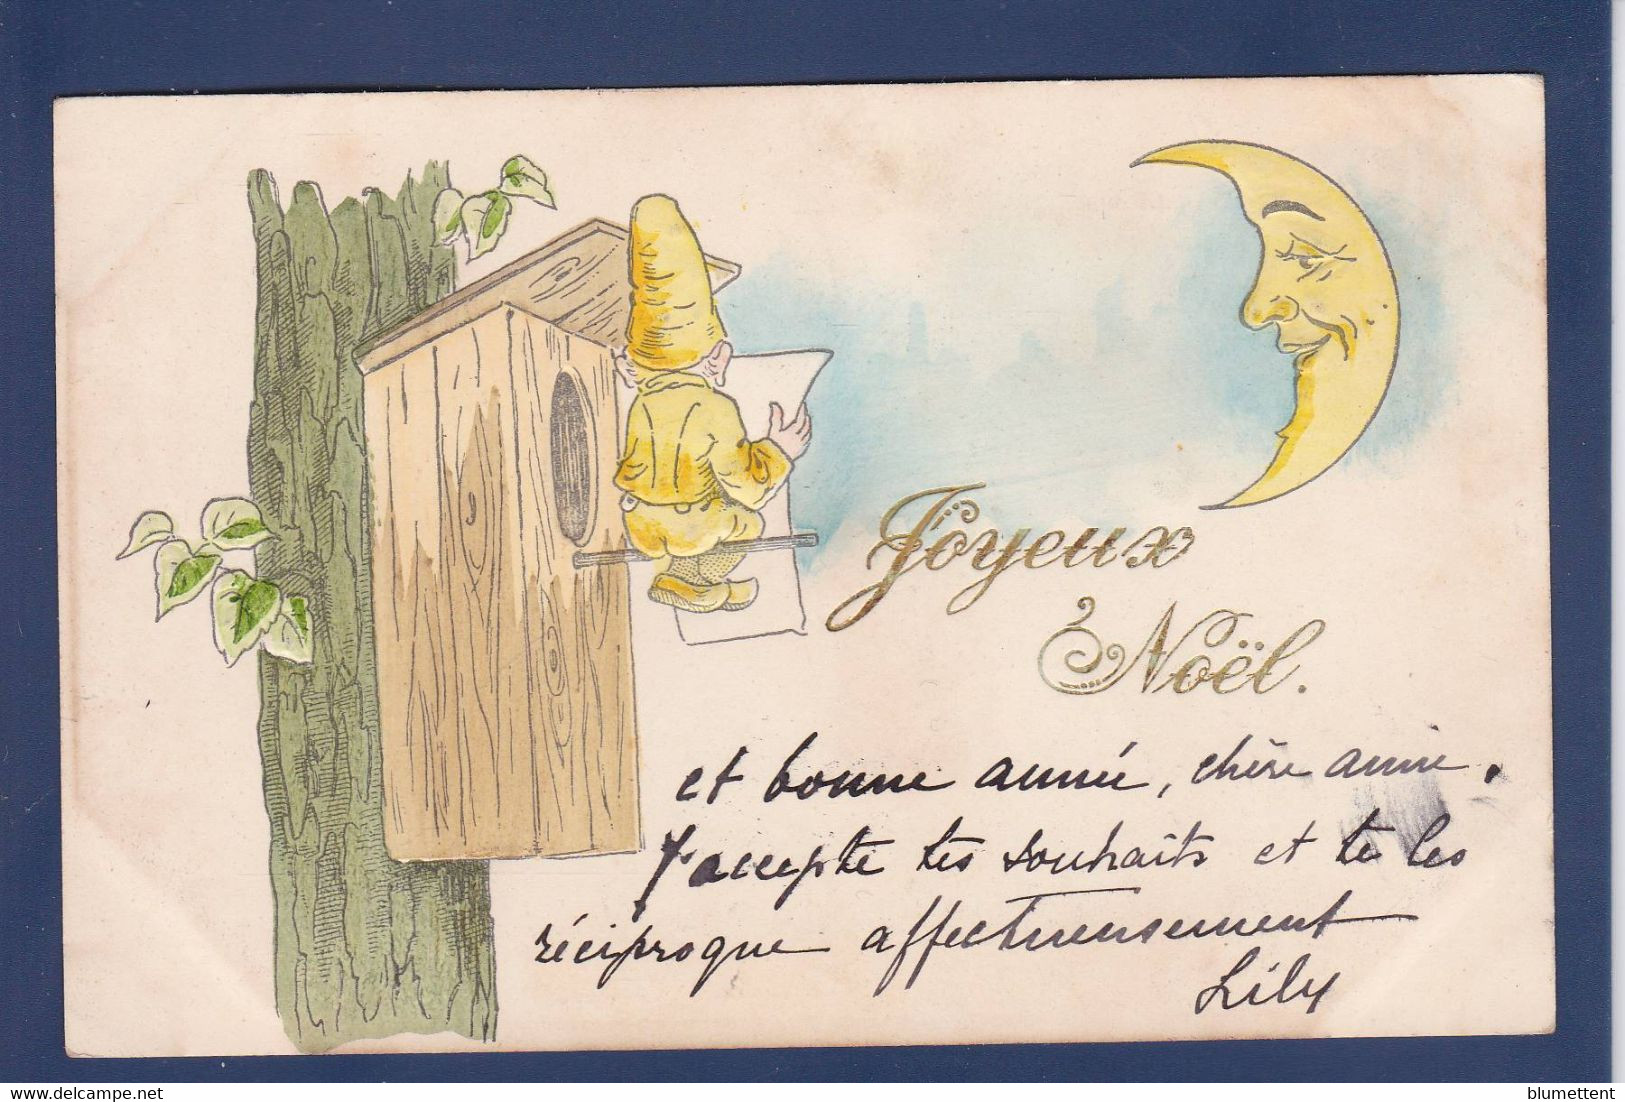 Joyeux
Noël.
et bonne année, chère amie.
J'accepte tes souhaits et te les
réciproque affectueusement
Lily
blumettent